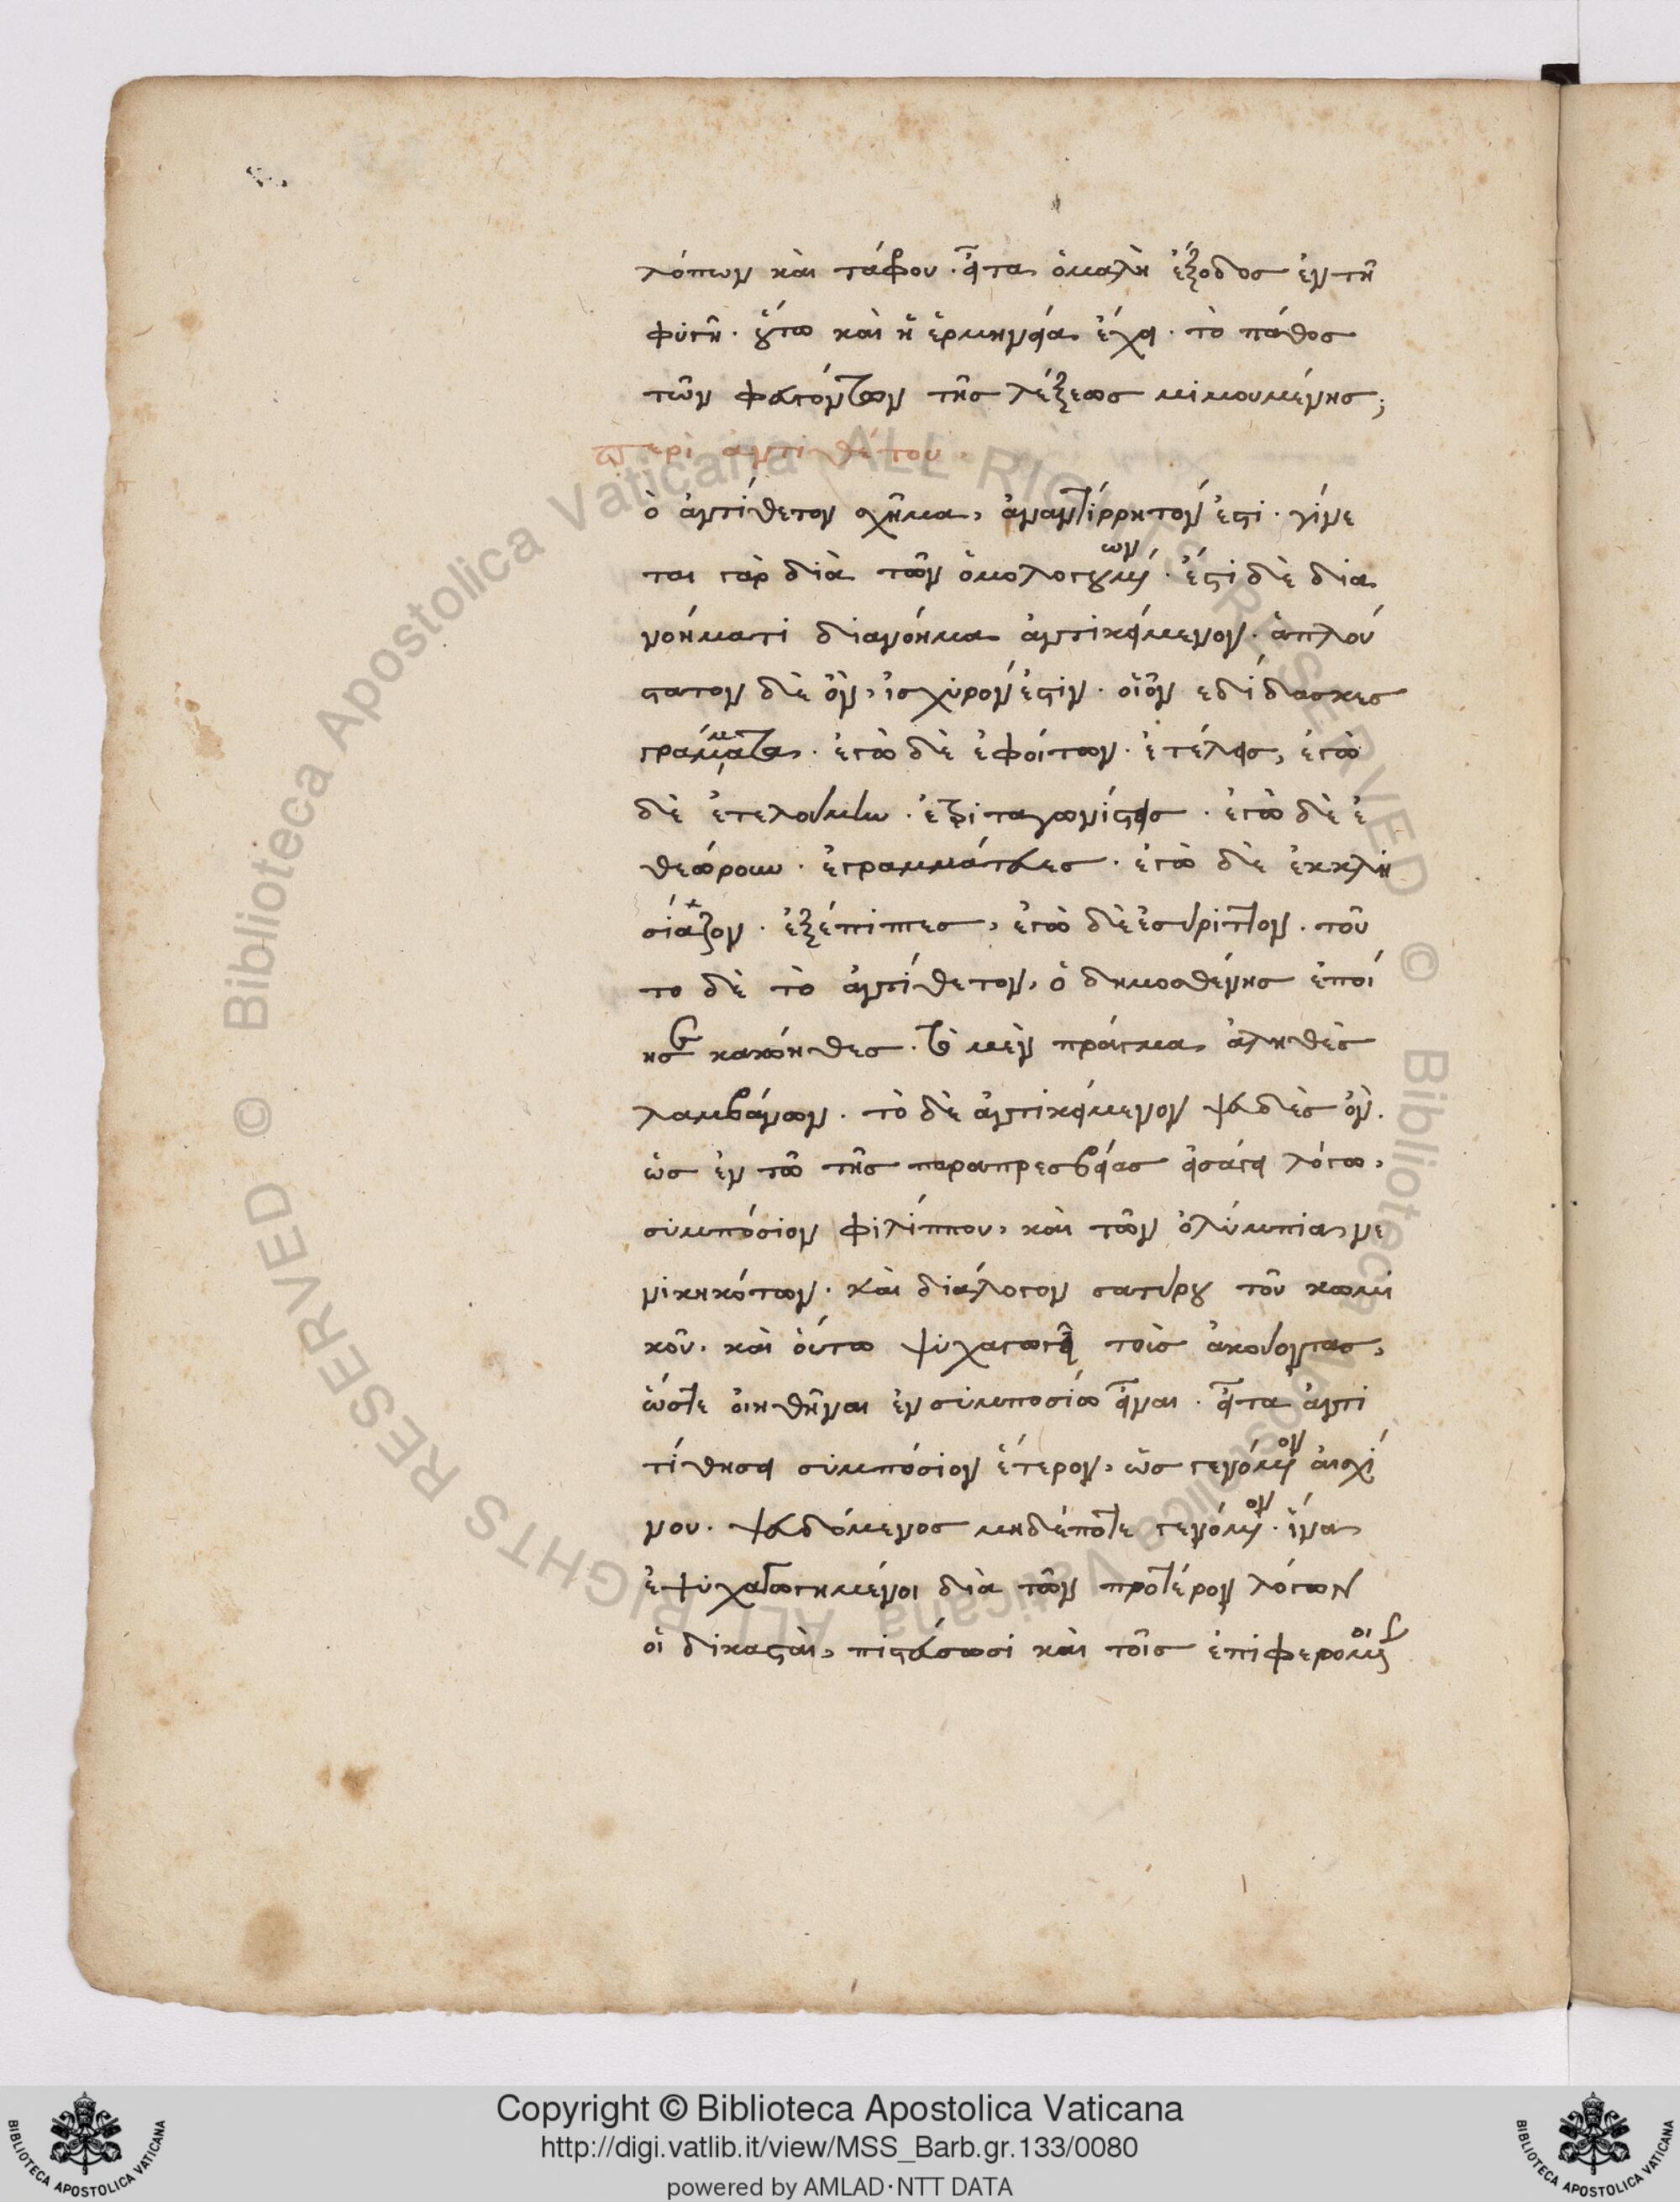 λόπων καὶ τάφου. εἶτα ὁμαλὴ ἔξοδος ἐν τῆ
φυγῆ. οὕτω καὶ ἡ ἑρμηνεία ἔχει. τὸ πάθος
τῶν φευγόντων τῆς λέξεως μιμουμένης;
περὶ ἀντιθέτου.
ὸ ἀντίθετον σχῆμα, ἀναντίρρητόν ἐστι. γίνε
ται γὰρ διὰ τῶν ὁμολογουμένων. ἔστι δὲ δια
νοήματι διανόημα ἀντικείμενον. ἁπλού
στατον δὲ ὂν, ἰσχυρόν ἐστιν. οἷον εδίδασκες
γράμματα. ἐγὼ δὲ ἐφοίτων. ἐτέλεις, ἐγὼ
δὲ ἐτελούμην. ἐτριταγωνίστεις. ἐγὼ δὲ ἐ
θεώρουν. ἐγραμμάτευες. ἐγὼ δὲ ἐκκλη
σίαζον. ἐξέπιπτες, ἐγὼ δὲ ἐσύριττον. τοῦ
το δὲ τὸ ἀντίθετον, ὁ δημοσθένης ἐποί
ησε κακόηθες. τὸ μὲν πράγμα ἀληθὲς
λαμβάνων. τὸ δὲ ἀντικείμενον ψευδὲς ὄν.
ὡς ἐν τῶ τῆς παραπρεσβείας εἰσάγει λόγω,
συμπόσιον φιλίππου, καὶ τῶν ὀλύμπια νε
νικηκότων. καὶ διάλογον σατύρου τοῦ κωμι
κοῦ. καὶ οὕτω ψυχαγωγεῖ τοὺς ἀκούοντας,
ὥστε οἰηθῆναι ἐν συμποσίω εἶναι. εἶτα ἀντι
τίθησει συμπόσιον ἕτερον, ὡς γενόμενον αἰσχί
νου. ψευδόμενος μηδέποτε γενόμενον. ἵνα
ἐψυχαγωγημένοι διὰ τῶν προτέρον λόγων
οἱ δικασταὶ, πιστεύσωσι καὶ τοῖς ἐπιφερομένοις
Copyright © Biblioteca Apostolica Vaticana
http://digi.vatlib.it/view/MSS_Barb.gr.133/0080
powered by AMLAD·NTT DATA
BIBLIOTECA APOSTOLICA VATICANA
BIBLIOTECA APOSTOLICA VATICANA
© Biblioteca Apostolica Vaticana ALL RIGHTS RESERVED
© Biblioteca Apostolica Vaticana ALL RIGHTS RESERVED